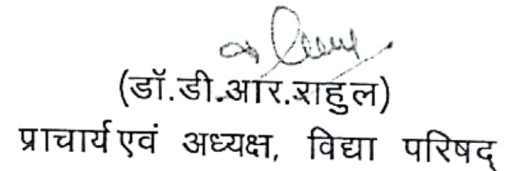 (डॉ.डी.आर.राहुल)
प्राचार्य एवं अध्यक्ष, विद्या परिषद्